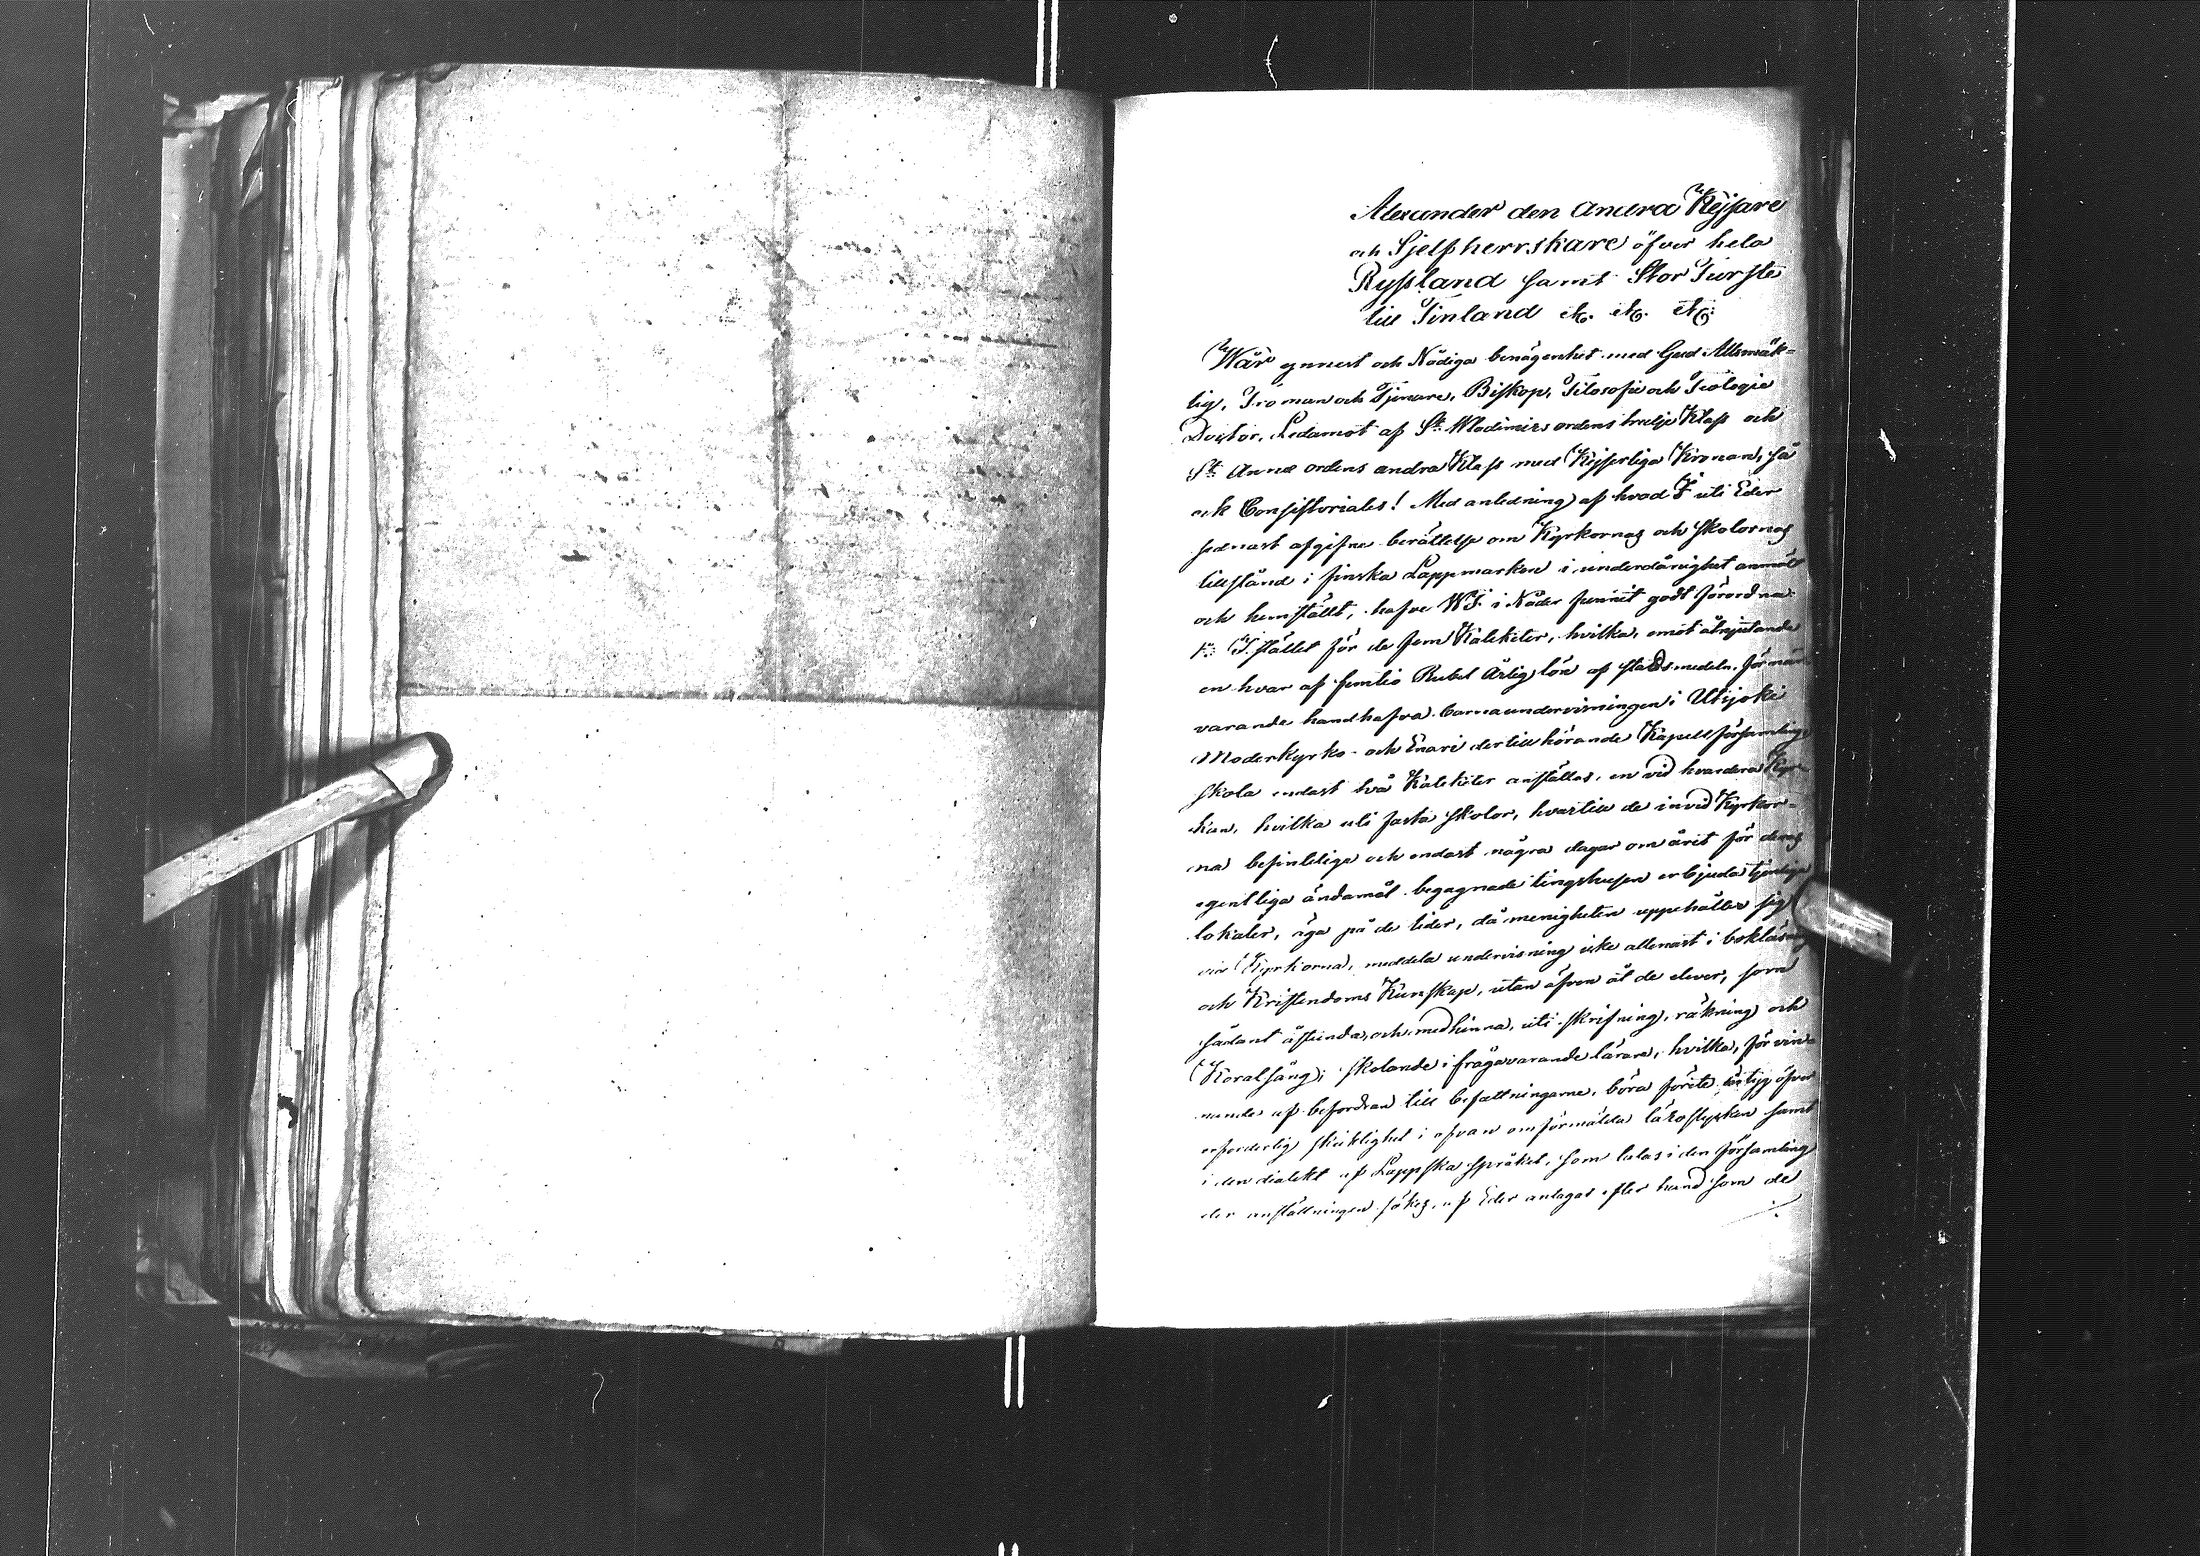 Alexander den Andra Kejsare
och Sjelfherrskare öfver hela
Ryssland samt Stor Furste
till Finland etc. etc. etc.
Wår ynnest och Nådiga benägenhet med Gud Allsmäk-
tig, Tro man och Tjenare, Biskop, Filosofie och Teologie
Doctor, Ledamot af St. Wladimirs ordens tredje Klass och
St. Annæ ordens andra Klass med Kejserliga Kronan, så
ock Consistoriales! Med anledning af hvad I uti Eder
senast afgifne berättelse om Kyrkornas och skolornas
tillstånd i finska Lappmarken i underdånighet anmält
och hemställt, hafve WI. i Nåder funnit godt förordna
1:o I stället för de fem Kateketer, hvilka, emot åtnjutande
en hvar af femtio Rubel årlig lön af statsmedeln, för när-
varande handhafva barnaundervisningen i Utsjoki
Moderkyrko- och Enari dertill hörande Kapellförsamling
skola endast två Kateketer anställas, en vid hvardera Kyr-
kan, hvilka uti fasta skolor, hvartill de invid Kyrkor-
na befintliga och endast några dagar om året för deras
egentliga ändamål begagnade tingshusen erbjuda tjenliga
lokaler, äga på de tider, då menigheten uppehåller sig
vid Kyrkorna, meddela undervisning icke allenast i bokläsning
och Kristendoms Kunskap, utan äfven åt de elever, som
sådant åstunda, och medhinna, uti skrifning, räkning och
Koralsång; skolande ifrågavarande lärare, hvilka, för vin-
nande af befordran till befattningarne, böra förete intyg öfver
erforderlig skicklighet i ofvan omförmälda lärostycken samt
i den dialekt af Lappska språket, som talas i den församling
der anställningen sökes, af Eder antagas efter hand som de